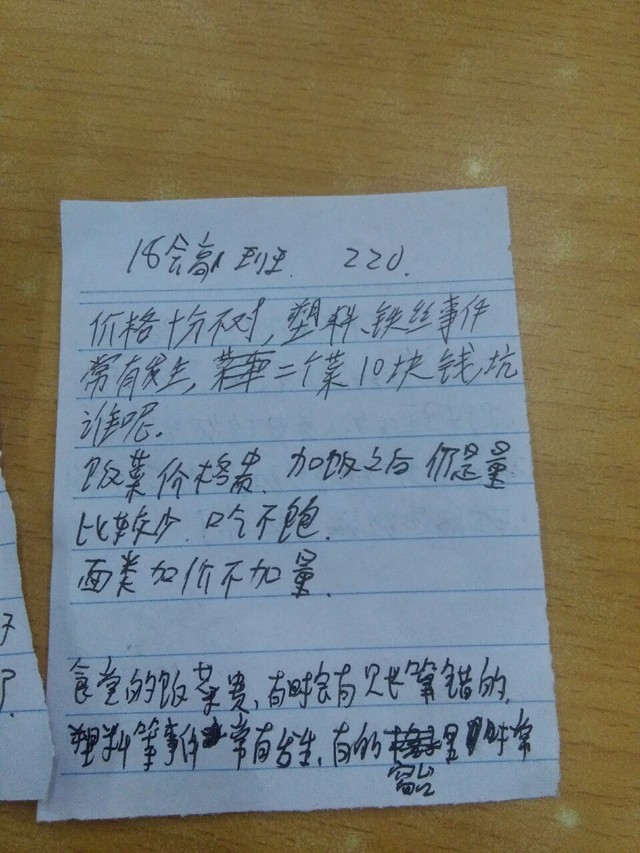 18会高1班. 220.
价格十分不对,塑料、铁丝事件
常有发生,二个菜10块钱,坑
谁呢。
饭菜价格贵、加饭之后 但是量
比较少. 吃不饱.
面类加价不加量.
食堂的饭菜贵、有时会有算错的,
塑料等事件常有发生,有的 里时常
窗台